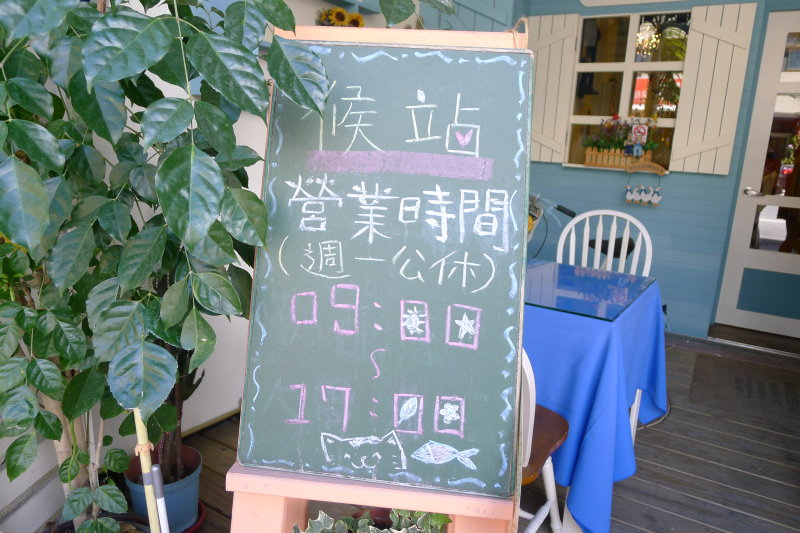 候站
營業時間
(週一公休)
09:00
~
17:00